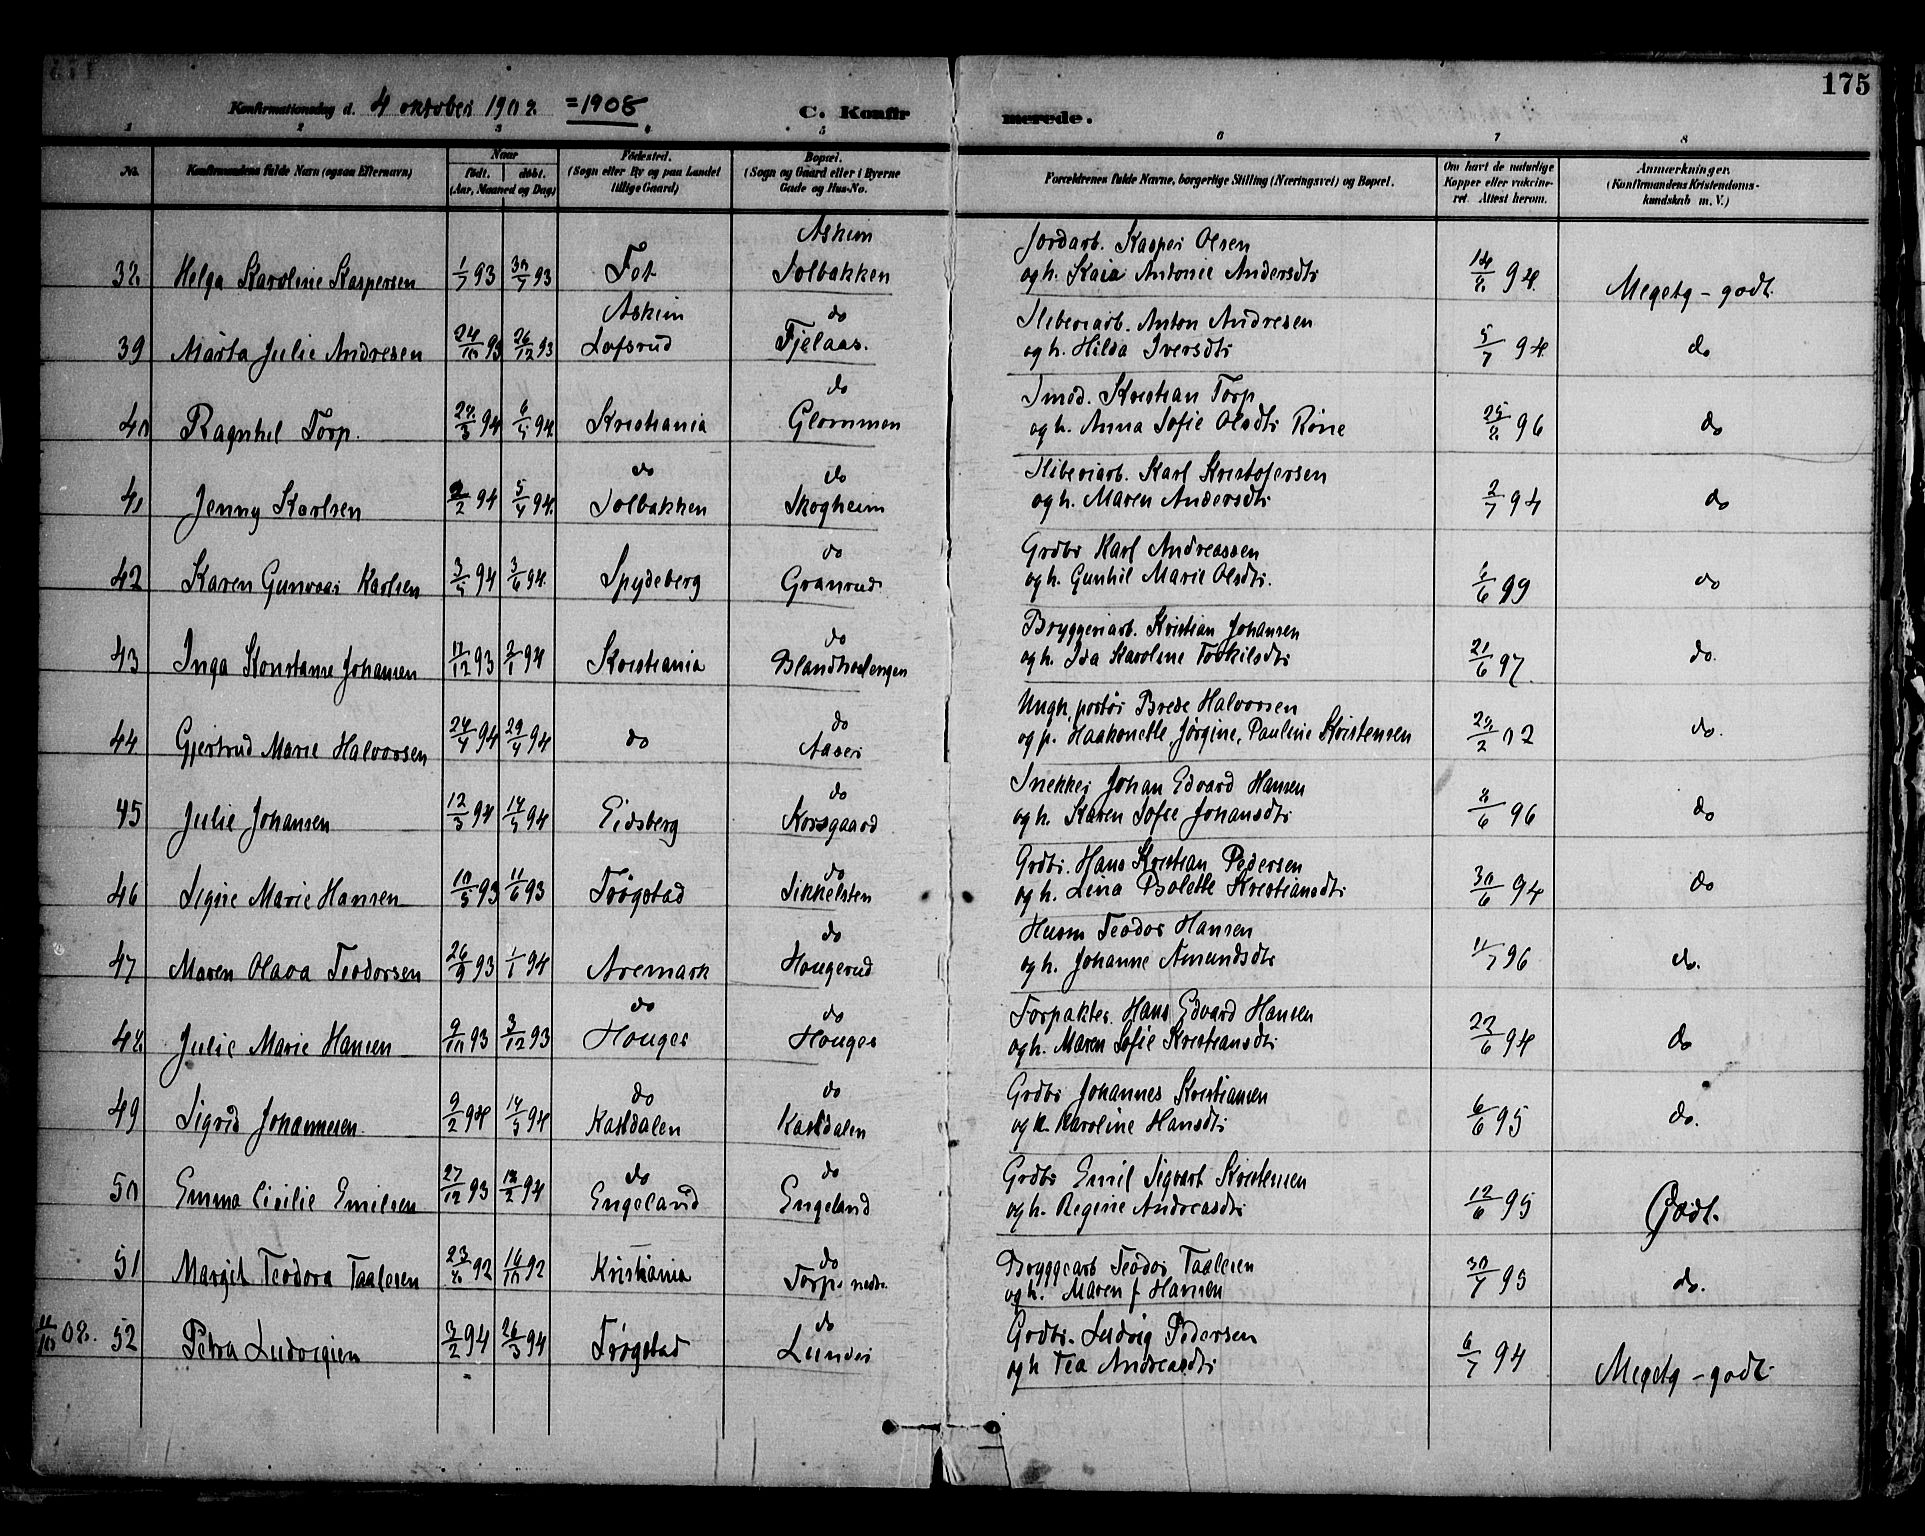 175
Konfirmationsdag d. 4 oktober 1902 =1908 C. Konfirmerede.
1 2 3 4 5 6 7 8
No. Konfirmandens fulde Navn (ogsaa Efternavn) Naar født. døbt. (Aar, Maaned og Dag) Fødested. (Sogn eller By og paa Landet tillige Gaard) Bopæl. (Sogn og Gaard eller i Byerne Gade og Hus-No. Forældrenes fulde Navne, borgerlige Stilling (Næringsvei) og Bopæl. Om havt de naturlige Kopper eller vakcineret. Attest herom. Anmærkninger. (Konfirmandens Kristendomskundskab m. V.)
Askim Jordarb. Kasper Olsen
38 Helga Karoline Kaspersen 1/7 93 30/7 93 Fet Solbakken og h. Kaia Antonie Andersdtr 14/8 94 Megetg - godt.
Askim do Sliberiarb. Anton Andresen
39 Marta Julie Andresen 24/10 93 26/12 93 Lofsrud Fjelaas. og h. Hilda Iversdtr 5/7 94 do
do Smed. Kristian Torp
40 Ragnhil Torp 28/3 94 6/5 94 Kristiania Glommen og h. Anna Sofie Olsdtr Röne 25/8 96 do
do do Sliberiarb. Karl Kristofersen
41 Jenny Karlsen 2/2 94 5/4 94 Solbakken Skogheim og h. Maren Andersdtr 2/7 94 do
do Grdbr Karl Andreassen
42 Karen Gunvor Karlsen 3/5 94 3/6 94 Spydeberg Granrud og h. Gunhil Marie Olsdtr. 6/6 99 do
do Bryggeriarb. Kristian Johansen
43 Inga Konstanse Johansen 17/12 93 2/1 94 Kristiania Blandhoelengen og h. Ida Karoline Torkilsdtr 21/6 97. do.
do Ungk. portör Brede Halvorsen
44 Gjertrud Marie Halvorsen 24/4 94 29/4 94 do Aaser og p. Haakonette Jørgine, Pauline Kristensen 28/2 02 do.
do Snekker Johan Edvard Hansen
45 Julie Johansen 12/3 94 14/5 94 Eidsberg Korsgaard og h. Karen Sofie Johansdtr 8/6 96 do
do Grdbr. Hans Kristian Pedersen
46 Signe Marie Hansen 10/5 93 11/6 93 Trøgstad Sikkelsten og h. Lina Bolette Kristiansdtr 30/6 94 do
do Husm Teodor Hansen
47 Maren Olava Teodorsen 26/9 93 1/1 94 Aremark Hougerud og h. Johanne Amundsdtr 11/7 96 do.
do do Forpakter. Hans Edvard Hansen
48 Julie Marie Hansen 9/10 93 3/12 93 Houger Houger og h. Maren Sofie Kristiansdtr 22/6 94 do
do do Grdbr Johannes Kristiansen
49 Sigrid Johannesen 9/2 94 14/5 94 Kastdalen Kastdalen og h. Karoline Hansdtr 6/6 95 do.
do do Grdbr Emil Sigvart Kristensen
50 Emma Cicilie Emilsen 27/12 93 18/2 94 Engeland Engeland og h. Regine Andreasdtr 12/6 95 Godt.
do Bryggearb Teodor Taalesen
51 Margit Teodora Taalesen 23/8 92 16/10 92 Kristiania Torp. nedr. og h. Maren f Hansen 30/7 95 do.
do Grdbr. Ludvig Pedersen
11/10 08. 52 Petra Ludvigsen 3/2 94 26/3 94 Trøgstad Lunder og h Tea Andreasdtr 6/7 94 Megetg - godt.